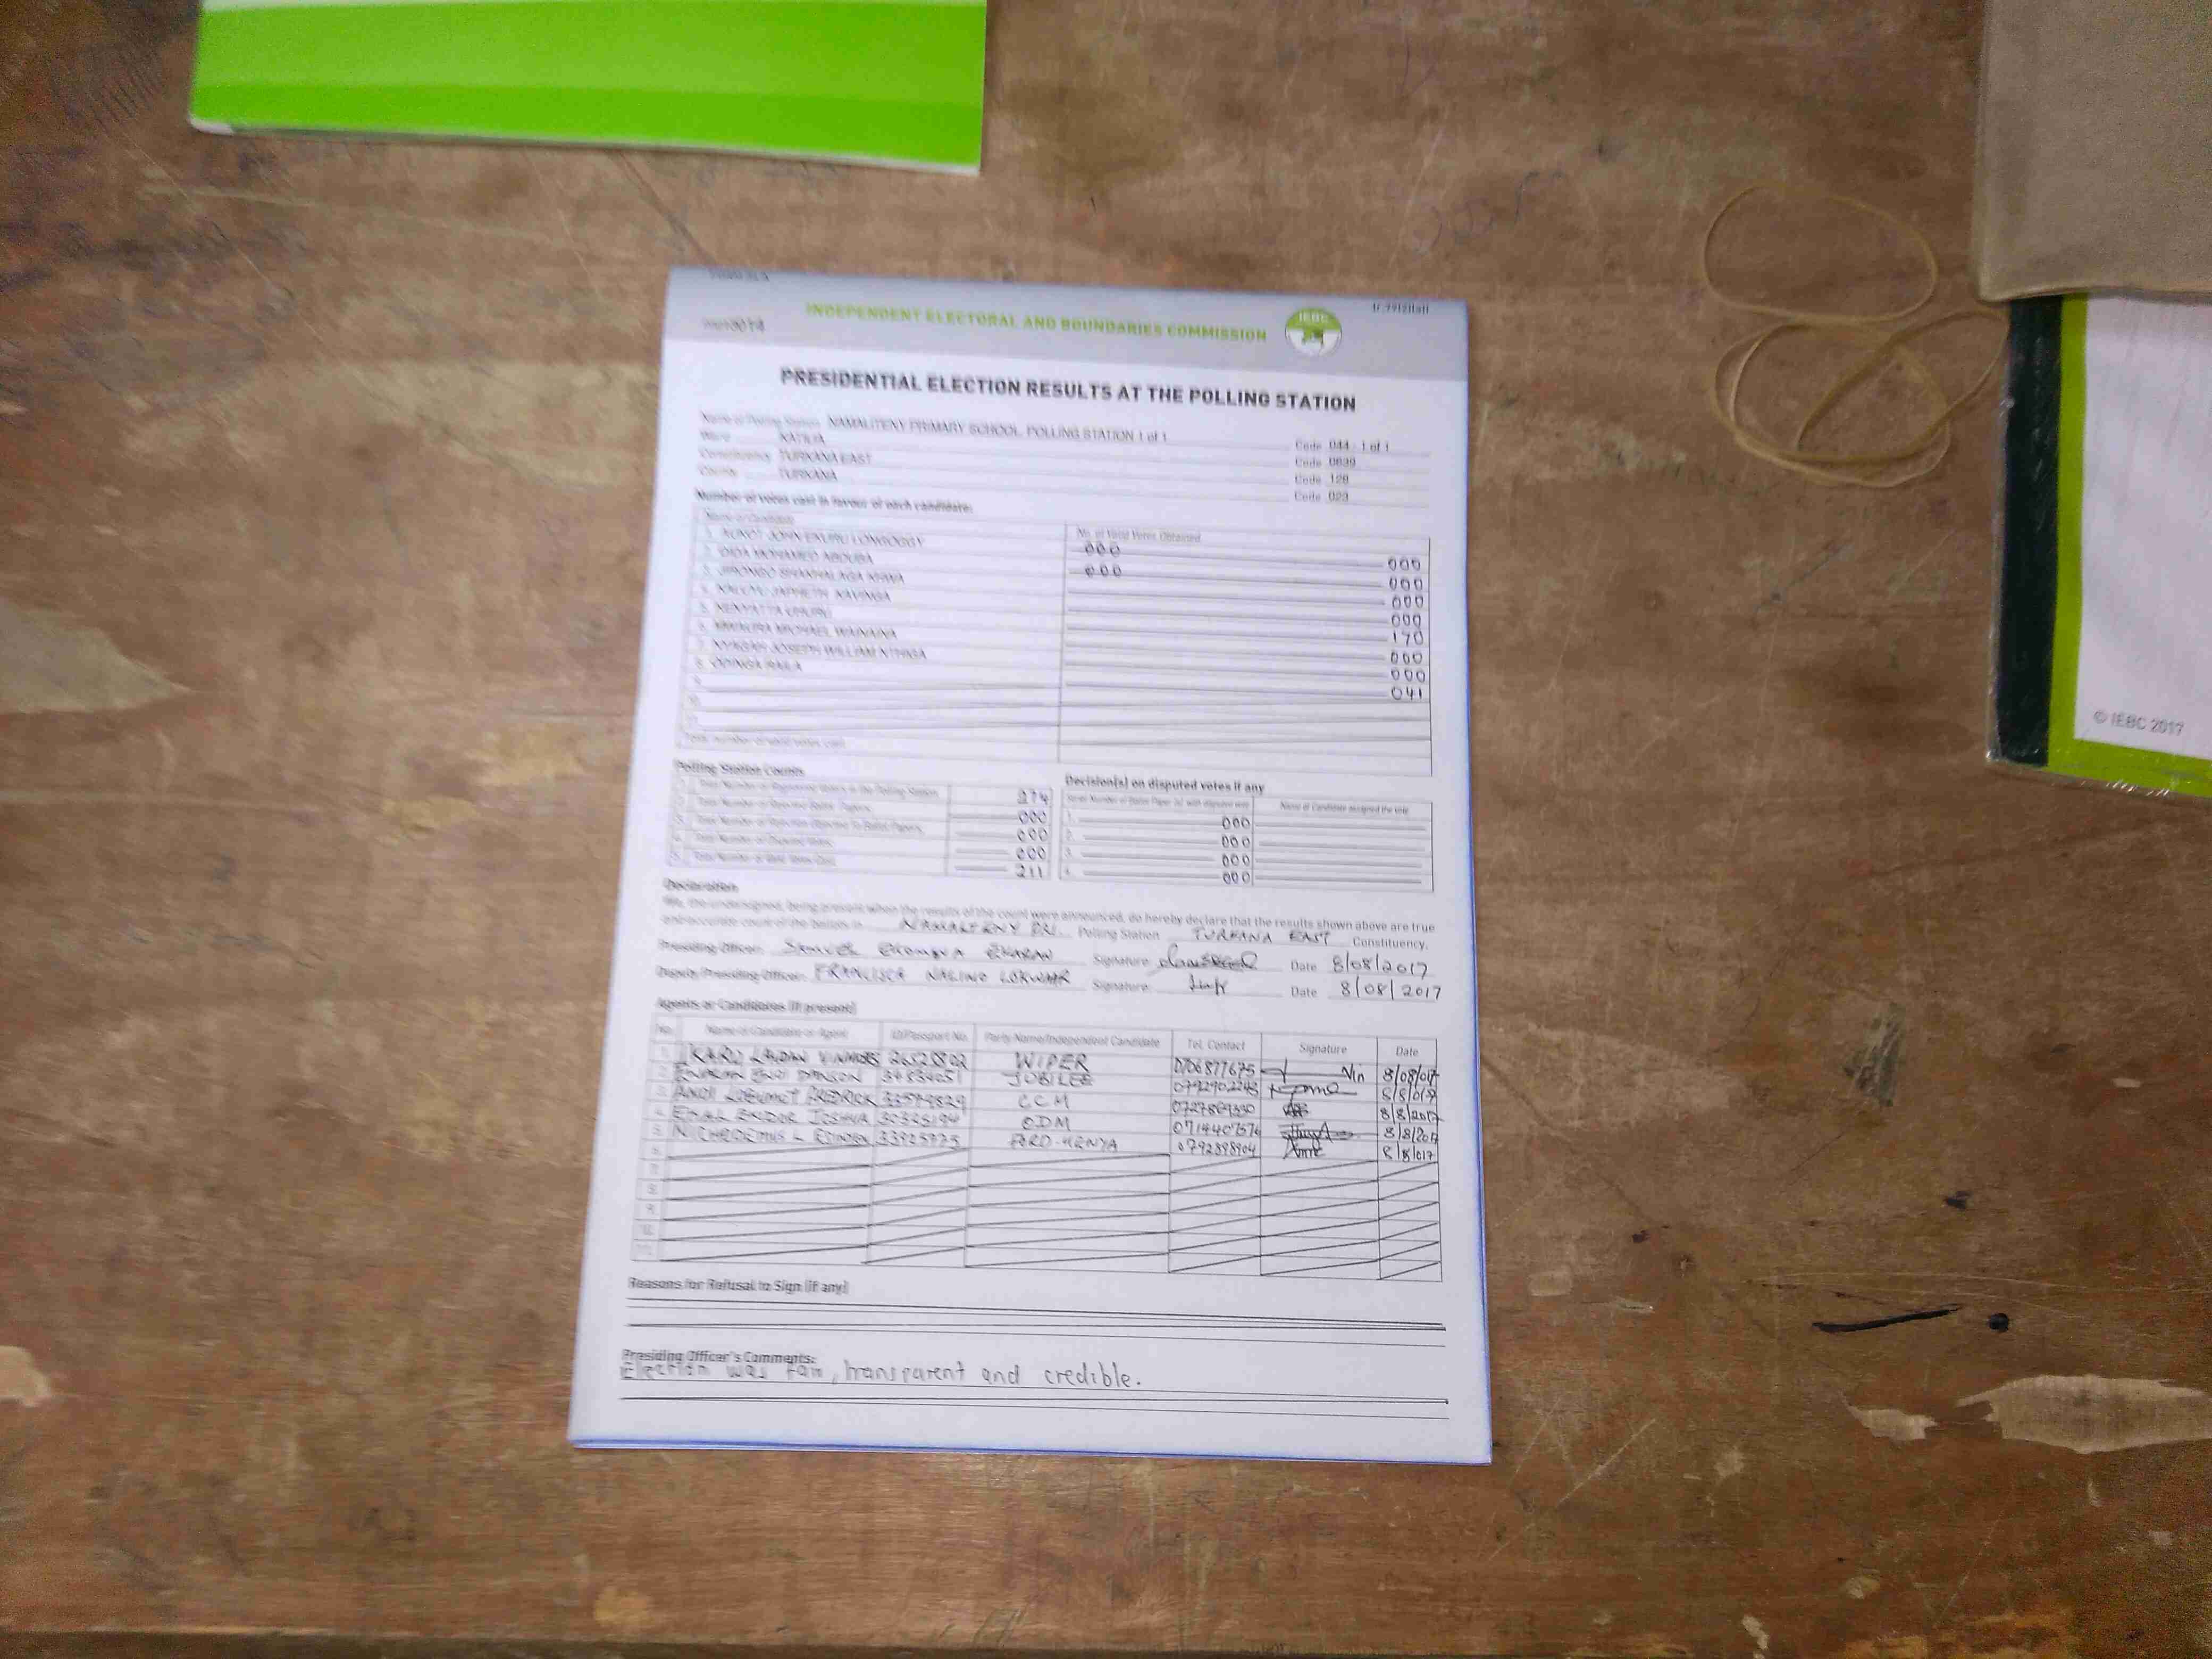 INDEPENDENT ELECTORAL AND BOUNDARIES COMMISSION
IEBC
PRESIDENTIAL ELECTION RESULTS AT THE POLLING STATION
Name of Polling Station NAMALITENY PRIMARY SCHOOL POLLING STATION 1 of 1 Code 044 - 1 of 1
Ward KATILIA Code 0639
Constituency TURKANA EAST Code 128
County TURKANA Code 023
Number of votes cast in favour of each candidate:
Name of Candidate No. of Valid Votes Obtained
1. AUKOT JOHN EKURU LONGOGGY 000 000
2. DIDA MOHAMED ABDUBA 000 000
3. JIRONGO SHAKHALAGA KHWA 000
4. KALUYU JAPHETH KAVINGA 000
5. KENYATTA UHURU 170
6. MWAURA MICHAEL WAINAINA 000
7. NYAGAH JOSEPH WILLIAM NTHIGA 000
8. ODINGA RAILA 041
9.
10.
11.
Total number of valid votes cast
Polling Station Counts
1. Total Number of Registered Voters in the Polling Station 274
2. Total Number of Rejected Ballot Papers 000
3. Total Number of Rejection Objected To Ballot Papers 000
4. Total Number of Disputed Votes 000
5. Total Number of Valid Votes Cast 211
Decision(s) on disputed votes if any
Serial Number of Ballot Paper (s) with disputed vote Name of Candidate assigned the vote
1. 000
2. 000
3. 000
4. 000
Declaration
We, the undersigned, being present when the results of the count were announced, do hereby declare that the results shown above are true
and accurate count of the ballots in NAMALITENY PRI. Polling Station TURKANA EAST Constituency.
Presiding Officer: Signature Date 8/08/2017
Deputy Presiding Officer: FRANCISCA NALINO LOKWAR Signature Date 8/08/2017
Agents or Candidates (if present)
No. Name of Candidate or Agent ID/Passport No. Party Name/Independent Candidate Tel. Contact Signature Date
1. WIPER 0706877675 Vin 8/08/017
2. JUBILEE 8/8/017
3. CCM 8/8/2017
4. JOSHUA ODM 8/8/2017
5. FORD-KENYA 8/8/017
6.
7.
8.
9.
10.
11.
Reasons for Refusal to Sign (if any)
Presiding Officer's Comments:
Election was fair, transparent and credible.
© IEBC 2017